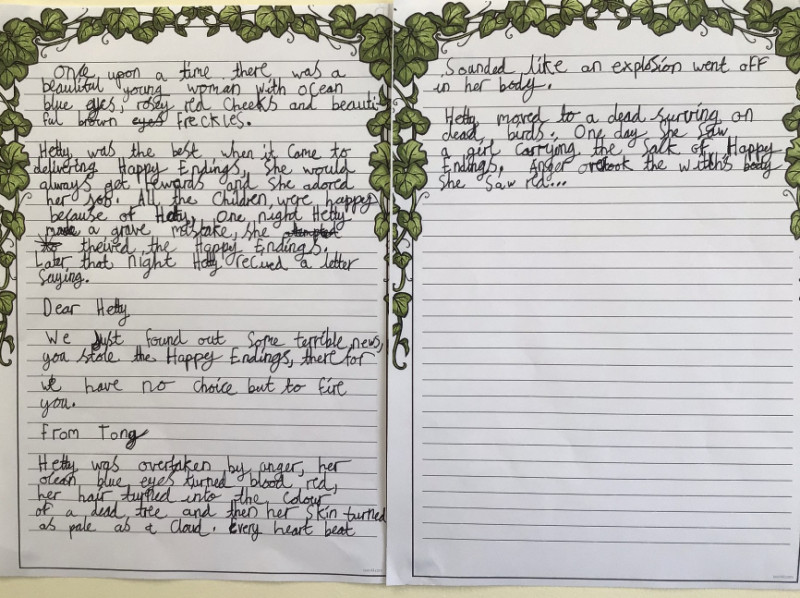 Once upon a time there was a
beautiful young woman with ocean
blue eyes, rosey red cheeks and beauti-
ful brown eyes freckles.
Hetty was the best when it came to
delivering Happy Endings, She would
always get rewards and she adored
her job. All the Children were happy
because of Hetty, One night Hetty
made a grave mistake, She
theived the Happy Endings.
Later that night Hetty recived a letter
Saying.
Dear Hetty
We Just found out Some terrible news,
you stole the Happy Endings, there for
we have no choice but to fire
you.
From Tong
Hetty was overtaken by anger, her
ocean blue eyes turned blood red,
her hair turned into the colour
of a dead tree and then her skin turned
as pale as a cloud. Every heart beat
Sounded like an explosion went off
in her body.
Hetty moved to a dead surving on
dead birds. One day She Saw
a girl carrying the Salk of Happy
Endings. Anger the witch's body
She Saw red...